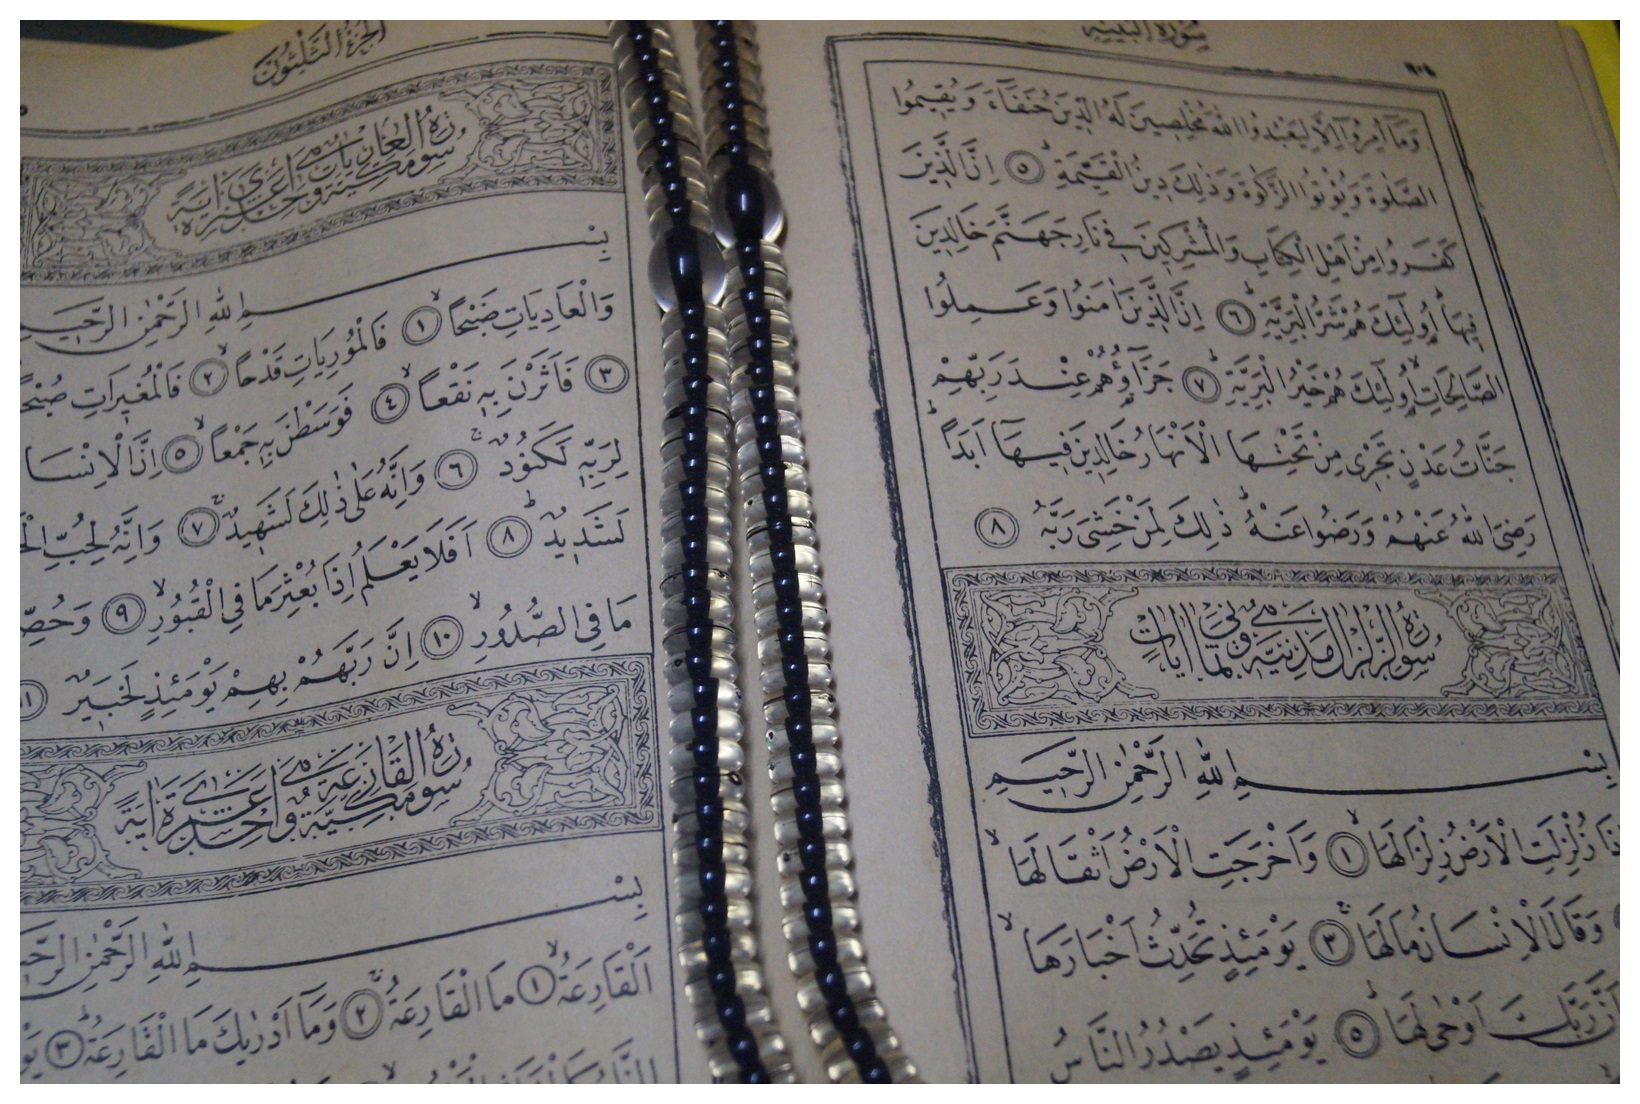 سورة البينة
٦٠٤
وَمَٓا اُمِرُٓوا اِلَّا لِيَعْبُدُوا اللّٰهَ مُخْلِصِينَ لَهُ الدِّينَ حُنَفَٓاءَ وَيُقِيمُوا
الصَّلٰوةَ وَيُؤْتُوا الزَّكٰوةَ وَذٰلِكَ دِينُ الْقَيِّمَةِ ٥ اِنَّ الَّذِينَ
كَفَرُوا مِنْ اَهْلِ الْكِتَابِ وَالْمُشْرِكِينَ فِي نَارِ جَهَنَّمَ خَالِدِينَ
فِيهَا اُولٰٓئِكَ هُمْ شَرُّ الْبَرِيَّةِ ٦ اِنَّ الَّذِينَ اٰمَنُوا وَعَمِلُوا
الصَّالِحَاتِ اُولٰٓئِكَ هُمْ خَيْرُ الْبَرِيَّةِ ٧ جَزَٓاؤُهُمْ عِنْدَ رَبِّهِمْ
جَنَّاتُ عَدْنٍ تَجْرِي مِنْ تَحْتِهَا الْاَنْهَارُ خَالِدِينَ فِيهَٓا اَبَدًا
رَضِيَ اللّٰهُ عَنْهُمْ وَرَضُوا عَنْهُ ذٰلِكَ لِمَنْ خَشِيَ رَبَّهُ ٨
سورة الزلزال مدنية وهي ثمان ايات
بِسْمِ اللّٰهِ الرَّحْمٰنِ الرَّحِيمِ
اِذَا زُلْزِلَتِ الْاَرْضُ زِلْزَالَهَا ١ وَاَخْرَجَتِ الْاَرْضُ اَثْقَالَهَا
وَقَالَ الْاِنْسَانُ مَا لَهَا ٣ يَوْمَئِذٍ تُحَدِّثُ اَخْبَارَهَا
اَنَّ رَبَّكَ اَوْحٰى لَهَا ٥ يَوْمَئِذٍ يَصْدُرُ النَّاسُ
الجزء الثلثون
سورة العاديات مكية وهي احدى عشرة اية
بِسْمِ اللّٰهِ الرَّحْمٰنِ الرَّحِيمِ
وَالْعَادِيَاتِ ضَبْحًا ١ فَالْمُورِيَاتِ قَدْحًا ٢ فَالْمُغِيرَاتِ صُبْحًا
٣ فَاَثَرْنَ بِهِ نَقْعًا ٤ فَوَسَطْنَ بِهِ جَمْعًا ٥ اِنَّ الْاِنْسَا
لِرَبِّهِ لَكَنُودٌ ٦ وَاِنَّهُ عَلٰى ذٰلِكَ لَشَهِيدٌ ٧ وَاِنَّهُ لِحُبِّ
لَشَدِيدٌ ٨ اَفَلَا يَعْلَمُ اِذَا بُعْثِرَ مَا فِي الْقُبُورِ ٩ وَحُصِّ
مَا فِي الصُّدُورِ ١٠ اِنَّ رَبَّهُمْ بِهِمْ يَوْمَئِذٍ لَخَبِيرٌ ١١
سورة القارعة مكية وهي احدى عشرة اية
بِسْمِ اللّٰهِ الرَّحْمٰنِ الرَّحِ
اَلْقَارِعَةُ ١ مَا الْقَارِعَةُ ٢ وَمَٓا اَدْرٰيكَ مَا الْقَارِعَةُ ٣ يَوْ